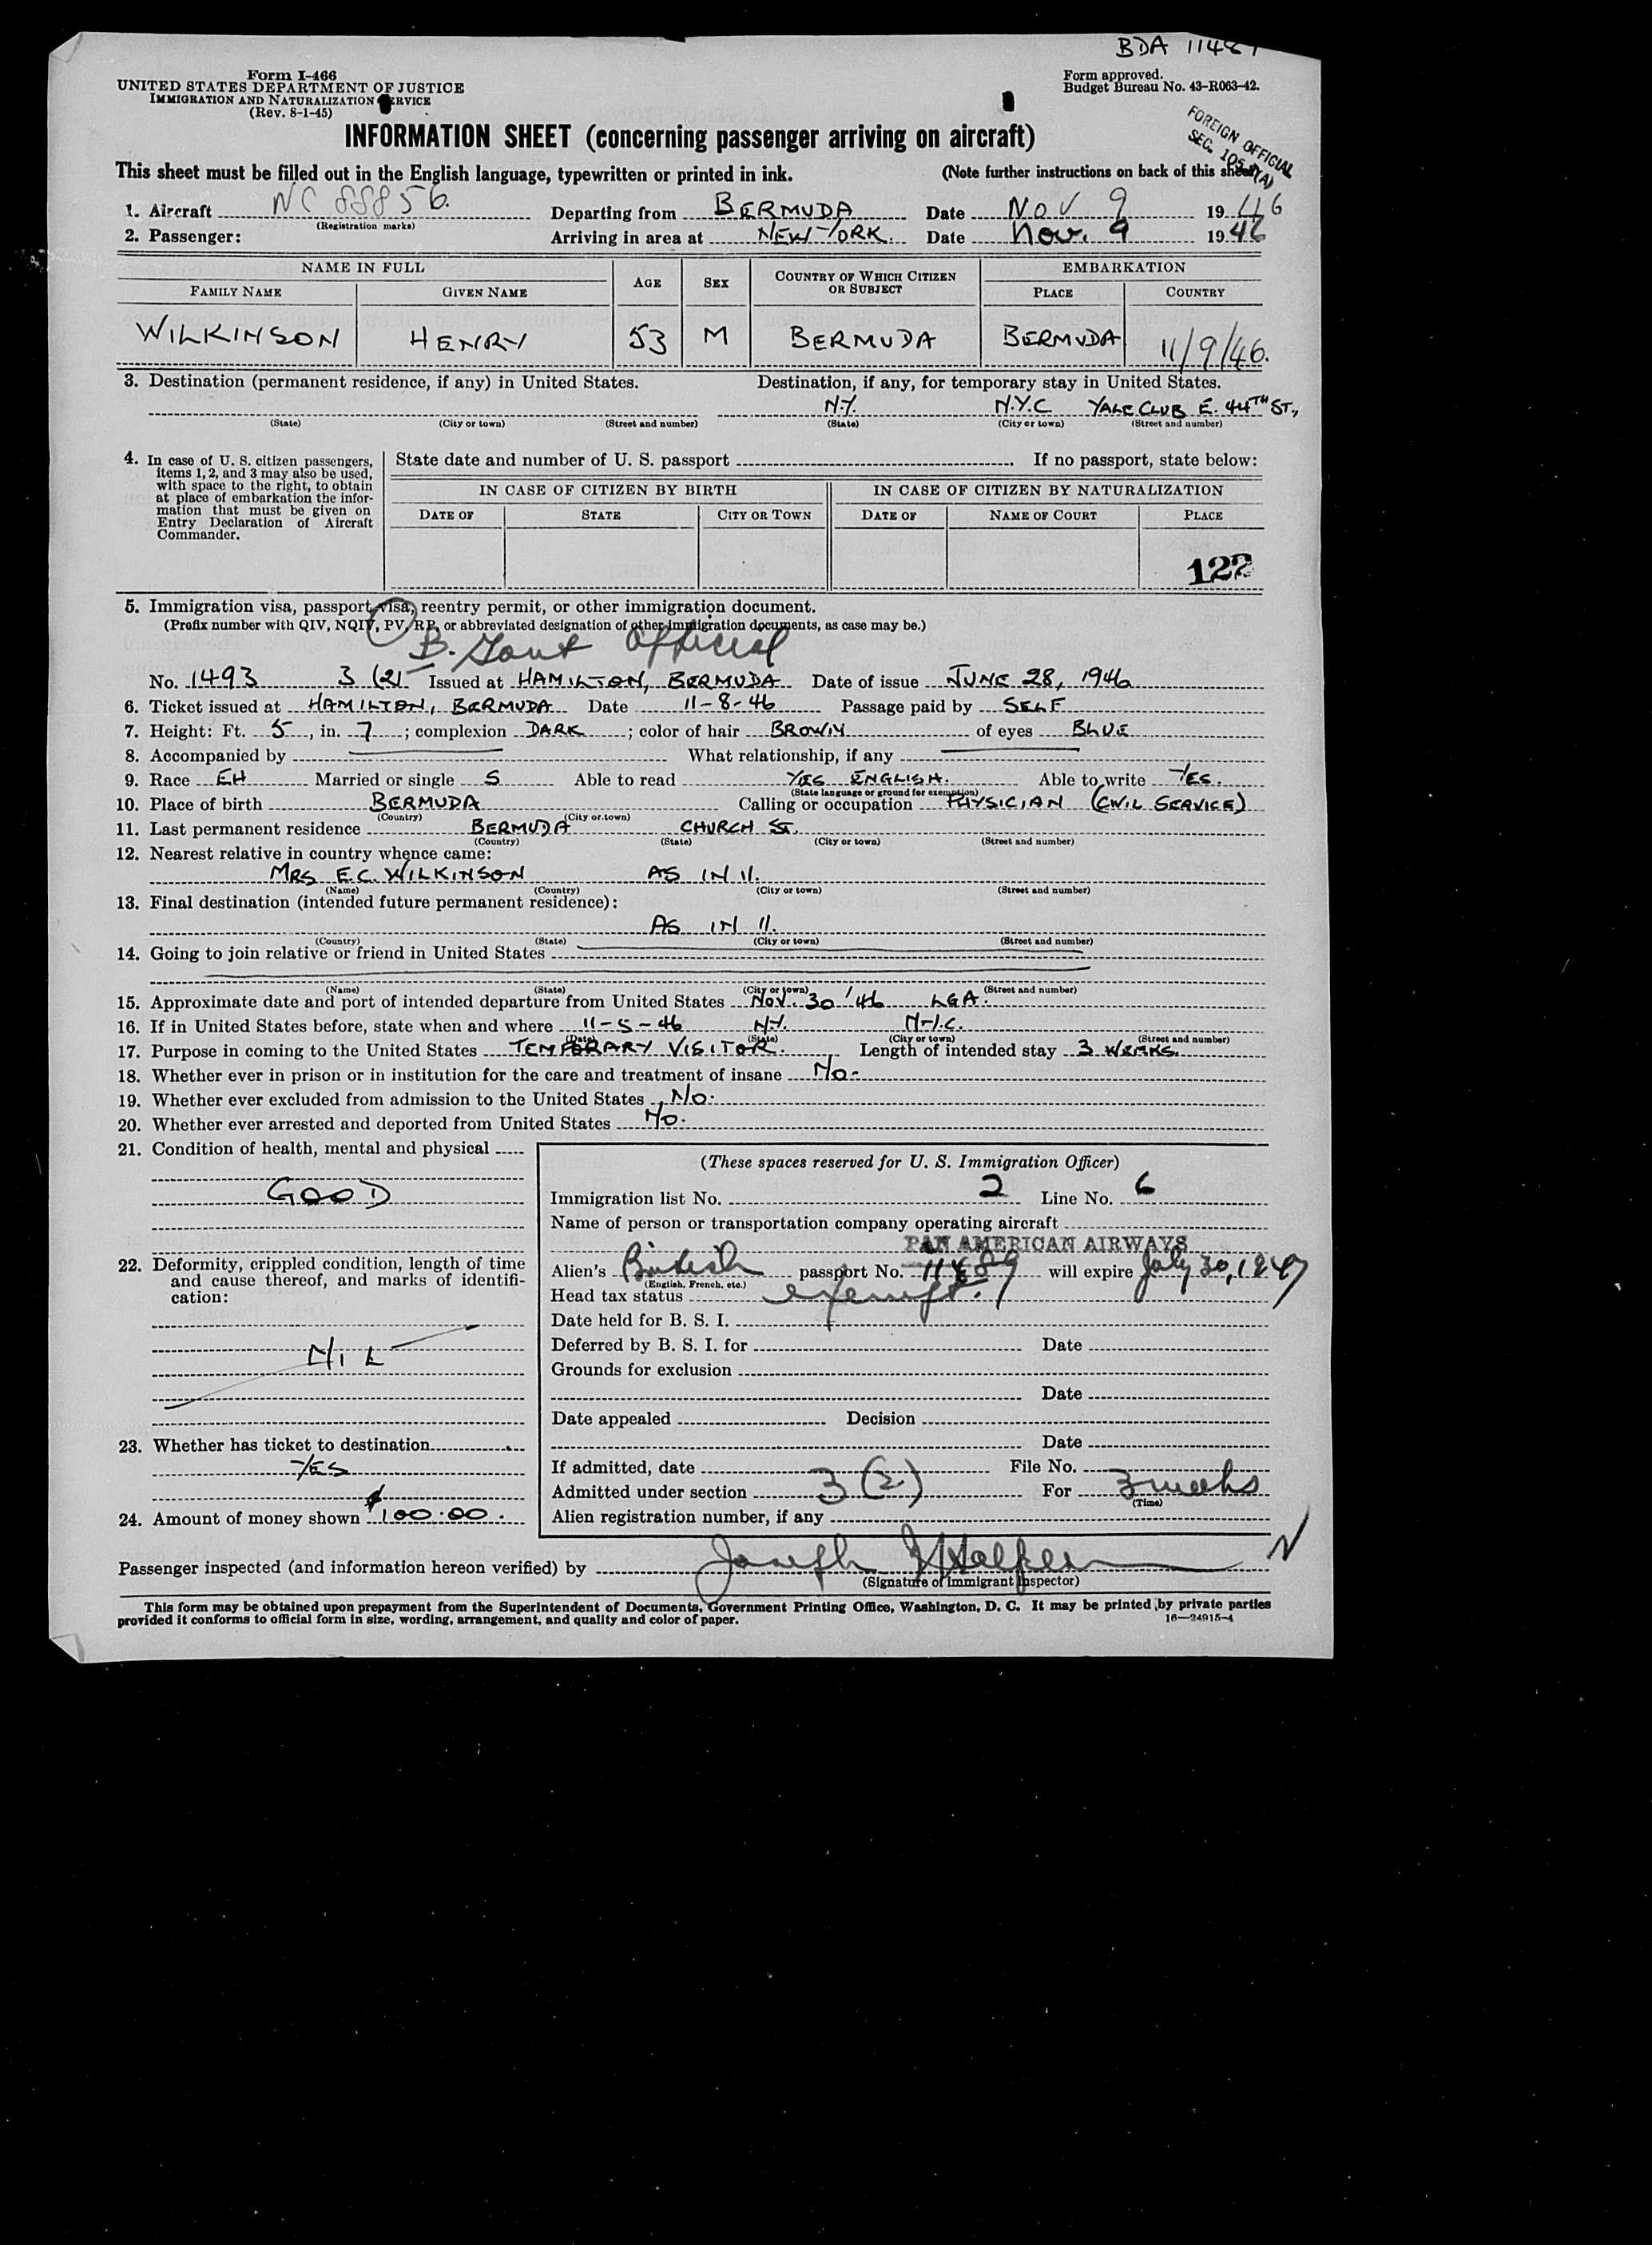 BDA 11489
Form I-466
UNITED STATES DEPARTMENT OF JUSTICE
IMMIGRATION AND NATURALIZATION SERVICE
(Rev. 8-1-45)
Form approved.
Budget Bureau No. 43-R063-42.
FOREIGN OFFICIAL
SEC. 105.3(A)
INFORMATION SHEET (concerning passenger arriving on aircraft)
This sheet must be filled out in the English language, typewritten or printed in ink. (Note further instructions on back of this sheet)
1. Aircraft NC 88856. Departing from BERMUDA Date NOV 9 1946
(Registration marks)
2. Passenger: Arriving in area at NEW YORK. Date Nov. 9 1946
NAME IN FULL AGE SEX COUNTRY OF WHICH CITIZEN OR SUBJECT EMBARKATION
FAMILY NAME GIVEN NAME PLACE COUNTRY
WILKINSON HENRY 53 M BERMUDA BERMUDA 11/9/46.
3. Destination (permanent residence, if any) in United States. Destination, if any, for temporary stay in United States.
N.Y. N.Y.C YALE CLUB E. 44TH ST.,
(State) (City or town) (Street and number) (State) (City or town) (Street and number)
4. In case of U. S. citizen passengers, items 1, 2, and 3 may also be used, with space to the right, to obtain at place of embarkation the information that must be given on Entry Declaration of Aircraft Commander.
State date and number of U. S. passport If no passport, state below:
IN CASE OF CITIZEN BY BIRTH IN CASE OF CITIZEN BY NATURALIZATION
DATE OF STATE CITY OR TOWN DATE OF NAME OF COURT PLACE
122
5. Immigration visa, passport visa, reentry permit, or other immigration document.
(Prefix number with QIV, NQIV, PV, RP, or abbreviated designation of other immigration documents, as case may be.)
B. Govt Official
No. 1493 3 (2) Issued at HAMILTON, BERMUDA Date of issue JUNE 28, 1946
6. Ticket issued at HAMILTON, BERMUDA Date 11-8-46 Passage paid by SELF
7. Height: Ft. 5, in. 7; complexion DARK; color of hair BROWN of eyes BLUE
8. Accompanied by What relationship, if any
9. Race EH Married or single S Able to read YES ENGLISH. Able to write YES.
(State language or ground for exemption)
10. Place of birth BERMUDA Calling or occupation PHYSICIAN (CIVIL SERVICE)
(Country) (City or town)
11. Last permanent residence BERMUDA CHURCH ST.
(Country) (State) (City or town) (Street and number)
12. Nearest relative in country whence came:
MRS E.C. WILKINSON AS IN 11.
(Name) (Country) (City or town) (Street and number)
13. Final destination (intended future permanent residence):
AS IN 11.
(Country) (State) (City or town) (Street and number)
14. Going to join relative or friend in United States
(Name) (State) (City or town) (Street and number)
15. Approximate date and port of intended departure from United States NOV. 30 '46 LGA.
16. If in United States before, state when and where 11-5-46 N.Y. N.Y.C.
(Date) (State) (City or town) (Street and number)
17. Purpose in coming to the United States TEMPORARY VISITOR. Length of intended stay 3 WEEKS.
18. Whether ever in prison or in institution for the care and treatment of insane No.
19. Whether ever excluded from admission to the United States No.
20. Whether ever arrested and deported from United States No.
21. Condition of health, mental and physical
GOOD
22. Deformity, crippled condition, length of time and cause thereof, and marks of identification:
NIL
23. Whether has ticket to destination
YES
24. Amount of money shown $100.00.
(These spaces reserved for U. S. Immigration Officer)
Immigration list No. 2 Line No. 6
Name of person or transportation company operating aircraft
PAN AMERICAN AIRWAYS
Alien's British passport No. 11489 will expire July 30, 1947
(English, French, etc.)
Head tax status exempt.
Date held for B. S. I.
Deferred by B. S. I. for Date
Grounds for exclusion
Date
Date appealed Decision
Date
If admitted, date File No.
Admitted under section 3 (2) For 3 weeks
(Time)
Alien registration number, if any
Passenger inspected (and information hereon verified) by Joseph
(Signature of Immigrant Inspector)
This form may be obtained upon prepayment from the Superintendent of Documents, Government Printing Office, Washington, D. C. It may be printed by private parties
provided it conforms to official form in size, wording, arrangement, and quality and color of paper. 16—24915-4